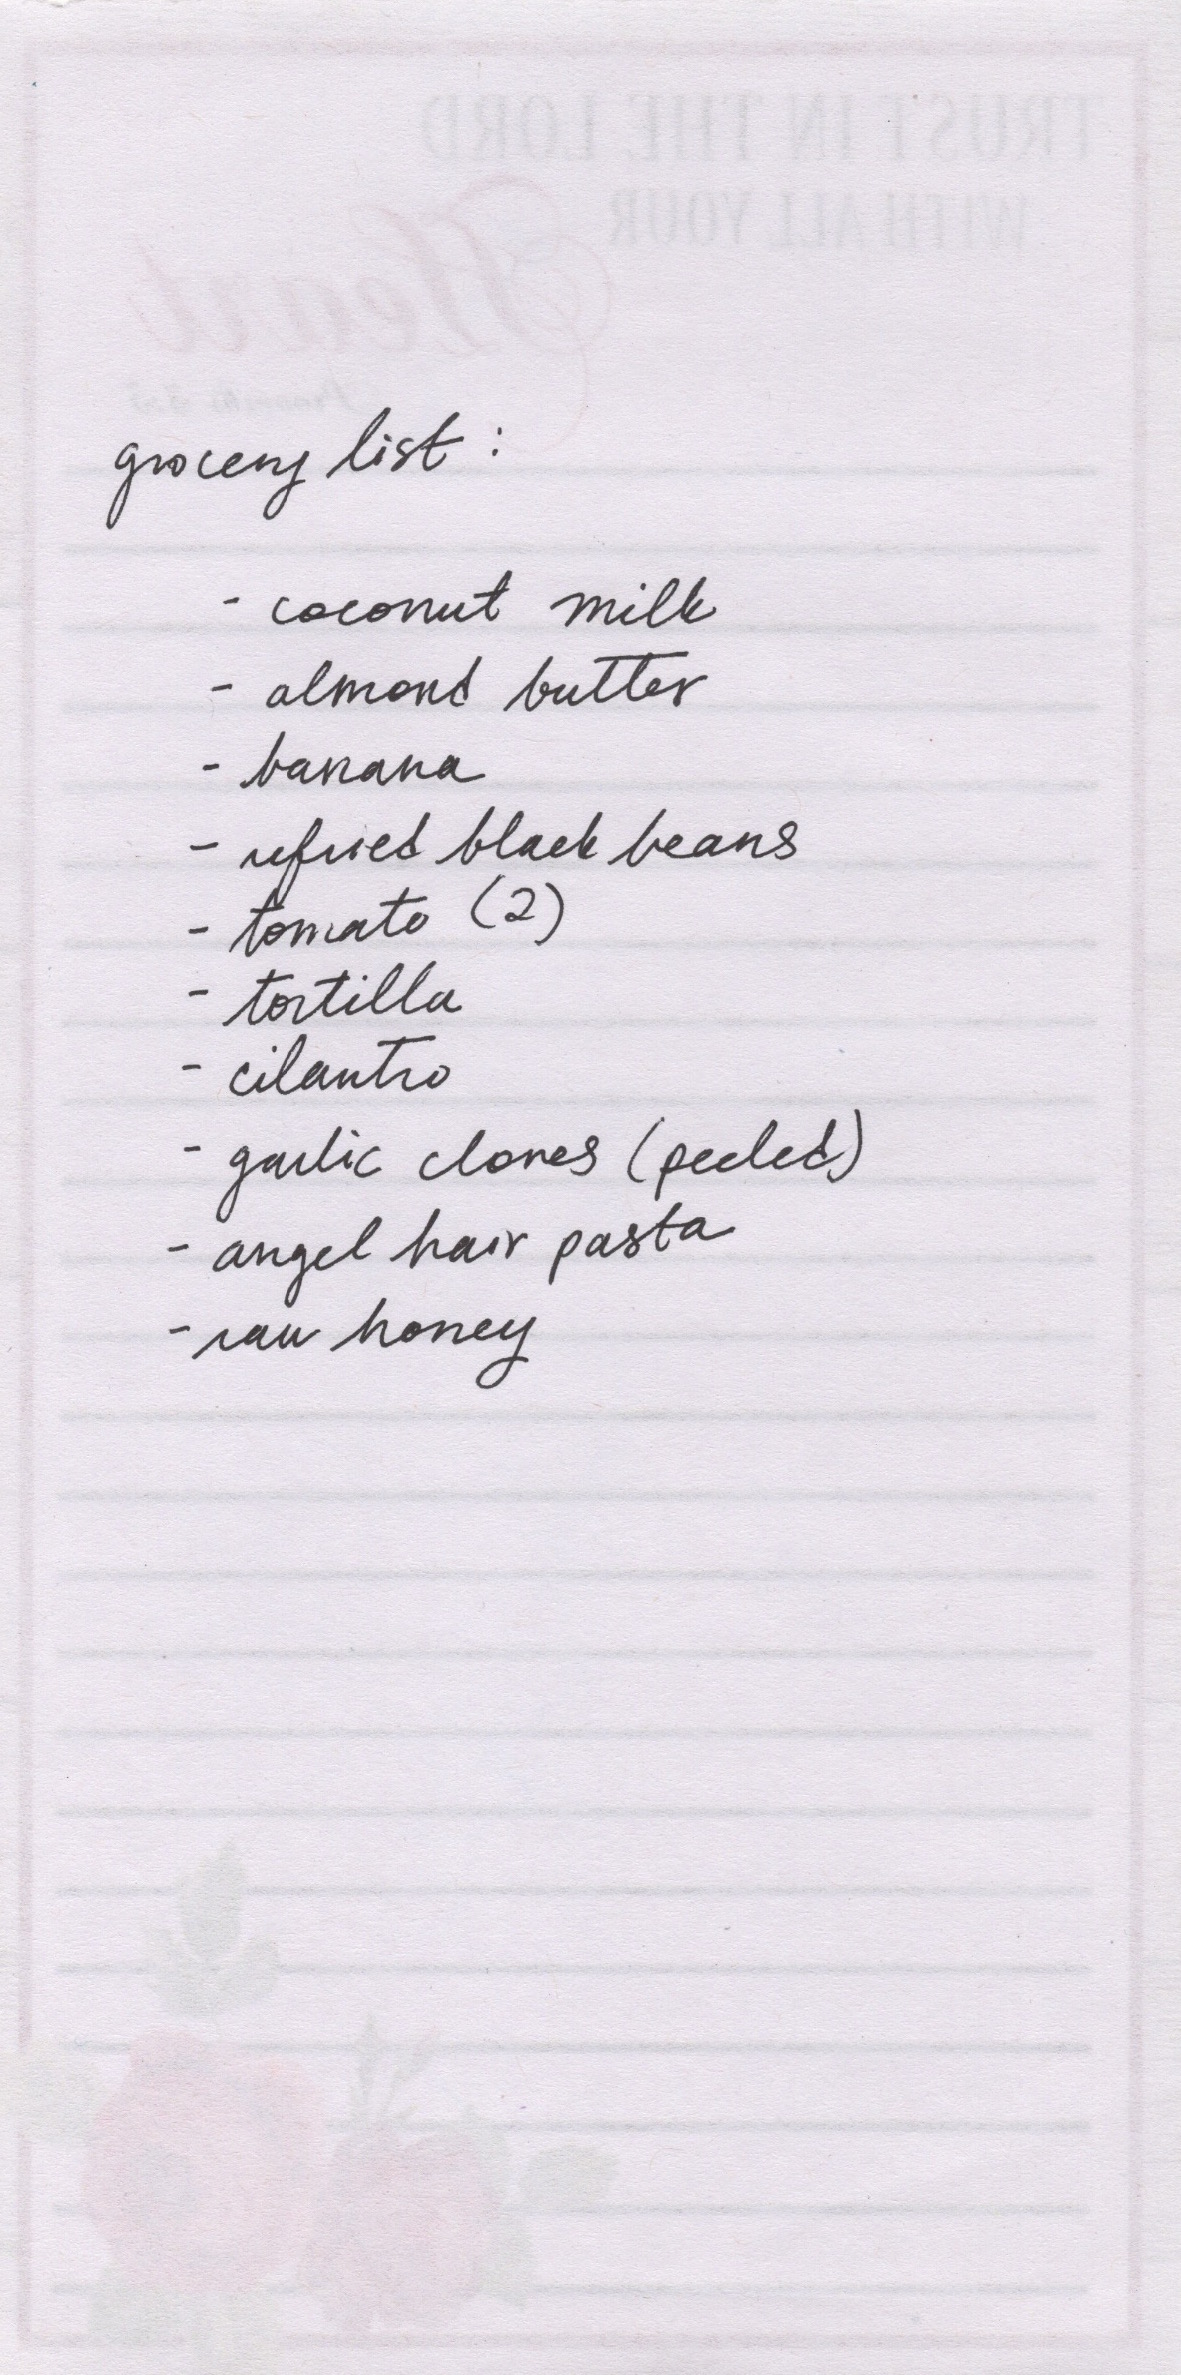 TRUST IN THE LORD
WITH ALL YOUR
Heart
Proverbs 3:5
grocery list :
- coconut milk
- almond butter
- banana
- refried black beans
- tomato (2)
- tortilla
- cilantro
- garlic cloves (peeled)
- angel hair pasta
- raw honey